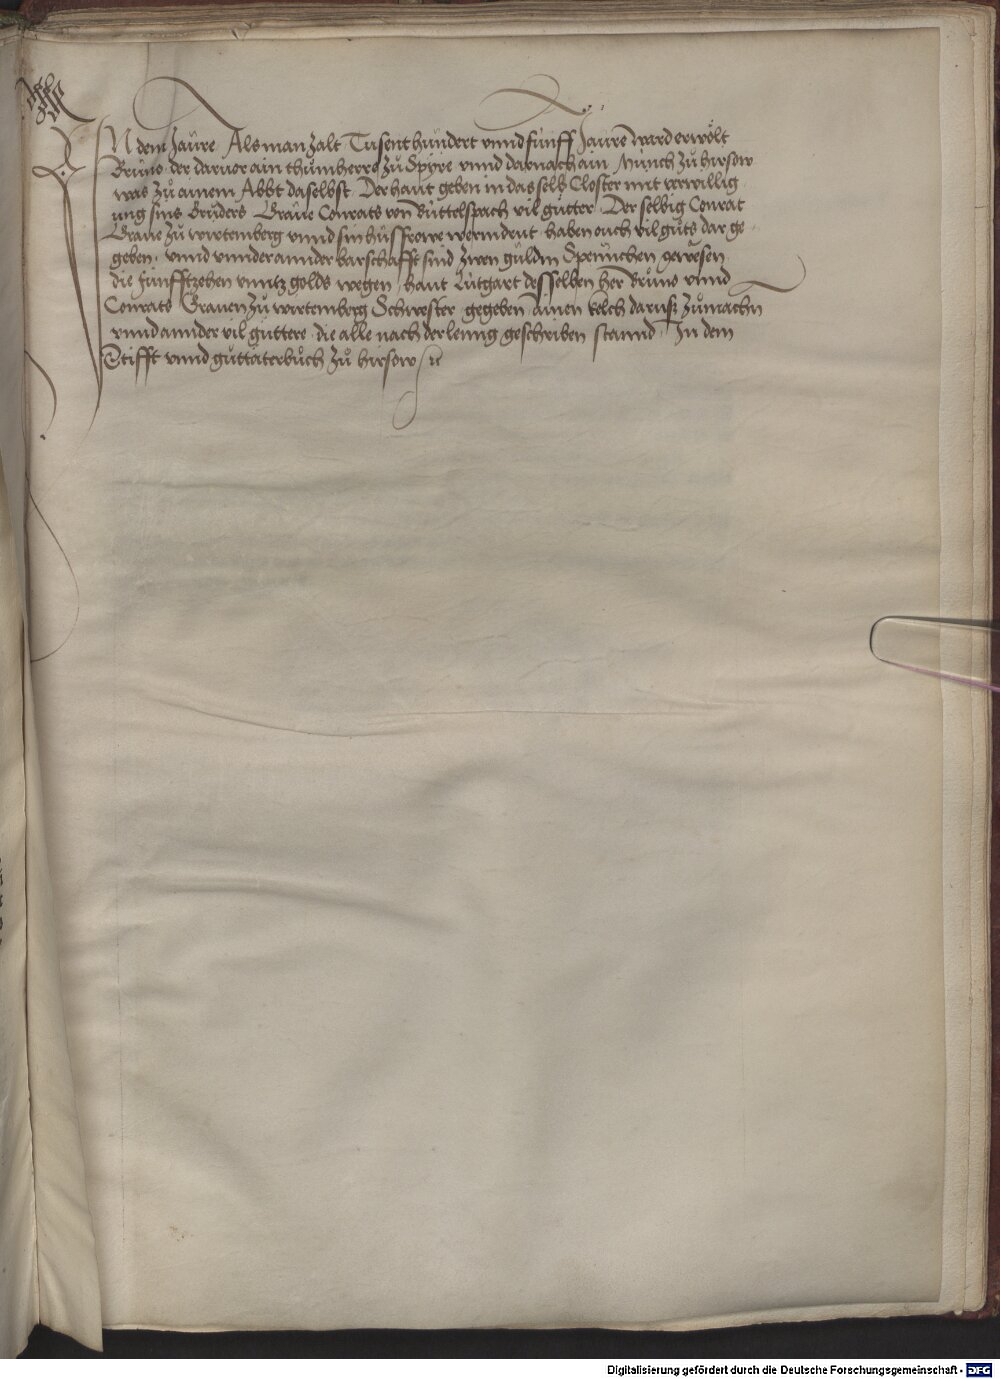 IN dem Jaüre Als man zalt Tusent hündert vnnd fünff Jaüre ward erwölt
Brüno der dauor ain thůmherre zů Spyre vnnd darnach ain Münch zů hirsow
was zů ainem Abbt daselbst Der haut geben in das selb Closter mit verwillig
ung sins Brüders Graüe Conrats von Büttelspach vil gütter Der selbig Conrat
Graue zů wirtemberg vnnd sin hüssfrowe wernndrut haben ouch vil gůts dar ge
geben vnnd vnnder annder barschafft sind zwen güldin Spennchen gewesen
die fünfftzehen vnntz golds wegen haut Lütgart desselben her Brüno vnnd
Conrats Grauen zů wirtemberg Schwester gegeben ainen kelch daruß zůmachn
vnnd annder vil güttere die alle nach der leinng geschriben stannd In dem
Stifft vnnd gůttäterbůch zů hirsow ꝛc
Digitalisierung gefördert durch die Deutsche Forschungsgemeinschaft - DFG